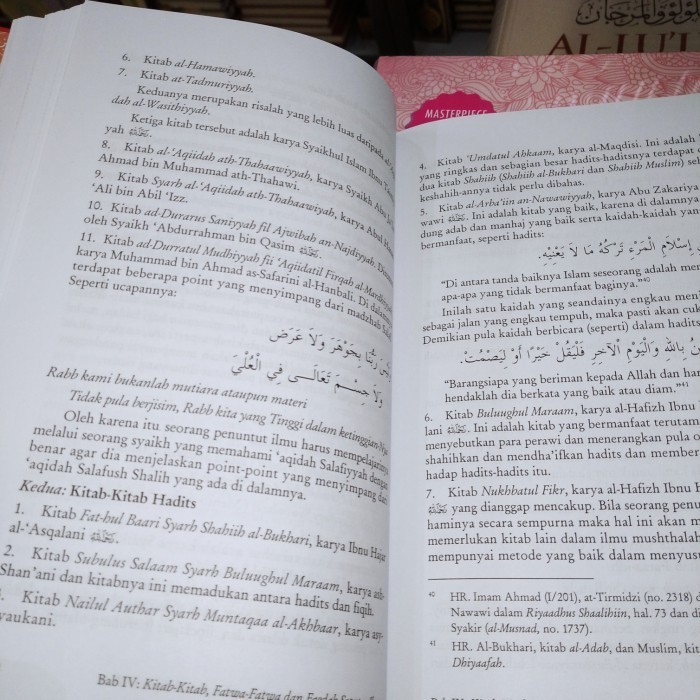 اللؤلؤ والمرجان
AL-LU'L
MASTERPIECE
6. Kitab al-Hamawiyyah.
7. Kitab at-Tadmuriyyah.
Keduanya merupakan risalah yang lebih luas daripada
dah al-Wasithiyyah.
Ketiga kitab tersebut adalah karya Syaikhul Islam Ibnu
yah
8. Kitab al-'Aqiidah ath-Thahaawiyyah, karya Syaikh Abu
Ahmad bin Muhammad ath-Thahawi.
9. Kitab Syarh al-'Aqiidah ath-Thahaawiyah, karya Abul
'Ali bin Abil 'Izz.
10. Kitab ad-Durarus Saniyyah fil Ajwibah an-Najdiyyah,
oleh Syaikh 'Abdurrahman bin Qasim
11. Kitab ad-Durratul Mudhiyyah fii 'Aqiidatil Firqah al-Mardhiyyah,
karya Muhammad bin Ahmad as-Safarini al-Hanbali. Di dalam
terdapat beberapa point yang menyimpang dari madzhab
Seperti ucapannya:
رَبُّنَا بِجَوْهَرَ وَلاَ عَرَضِ
وَلاَ جِسْمَ تَعَالَى فِي الْعُلَيَ
Rabb kami bukanlah mutiara ataupun materi
Tidak pula berjisim, Rabb kita yang Tinggi dalam ketinggian-Nya
Oleh karena itu seorang penuntut ilmu harus mempelajarinya
melalui seorang syaikh yang memahami 'aqidah Salafiyyah dengan
benar agar dia menjelaskan point-point yang menyimpang dari
'aqidah Salafush Shalih yang ada di dalamnya.
Kedua: Kitab-Kitab Hadits
1. Kitab Fat-hul Baari Syarh Shahiih al-Bukhari, karya Ibnu Hajar
al-'Asqalani
2. Kitab Subulus Salaam Syarh Buluughul Maraam, karya ash-
Shan'ani dan kitabnya ini memadukan antara hadits dan fiqih.
Kitab Nailul Authar Syarh Muntaqaa al-Akhbaar, karya asy-
yaukani.
Bab IV: Kitab-Kitab, Fatwa-Fatwa dan
4. Kitab 'Umdatul Ahkaam, karya al-Maqdisi. Ini adalah
yang ringkas dan sebagian besar hadits-haditsnya terdapat
dua kitab Shahiih (Shahiih al-Bukhari dan Shahiih Muslim)
keshahih-annya tidak perlu dibahas.
5. Kitab al-Arba'iin an-Nawawiyyah, karya Abu Zakariy
wawi. Ini adalah kitab yang baik, karena di dalamnya
dung adab dan manhaj yang baik serta kaidah-kaidah
bermanfaat, seperti hadits:
إِسْلاَمِ الْمَرْءِ تَرْكُهُ مَا لاَ يَعْنِيْهِ.
"Di antara tanda baiknya Islam seseorang adalah
apa-apa yang tidak bermanfaat baginya."40
Inilah satu kaidah yang seandainya engkau
sebagai jalan yang engkau tempuh, maka pasti akan
Demikian pula kaidah berbicara (seperti) dalam hadits
بِاللهِ وَالْيَوْمِ الْآخِرِ فَلْيَقُلْ خَيْرًا أَوْ لِيَصْمُتْ.
"Barangsiapa yang beriman kepada Allah dan
hendaklah dia berkata yang baik atau diam."41
6. Kitab Buluughul Maraam, karya al-Hafizh Ibnu
lani. Ini adalah kitab yang bermanfaat
menyebutkan para perawi dan menerangkan pula
shahihkan dan mendha'ifkan hadits dan
hadap hadits-hadits itu.
7. Kitab Nukhbatul Fikr, karya al-Hafizh Ibnu
yang dianggap mencakup. Bila seorang
haminya secara sempurna maka hal ini akan
memerlukan kitab lain dalam ilmu
mempunyai metode yang baik dalam
40 HR. Imam Ahmad (I/201), at-Tirmidzi (no. 2318)
Nawawi dalam Riyaadhus Shaalihiin, hal. 73 dan
Syakir (al-Musnad, no. 1737).
41 HR. Al-Bukhari, kitab al-Adab, dan Muslim,
Dhiyaafah.